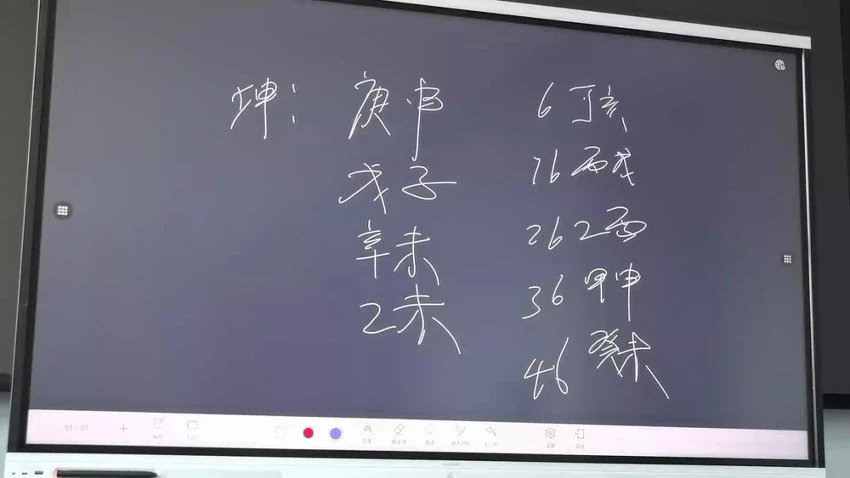 坤：
庚申
戊子
辛未
乙未
6 丁亥
16 丙戌
26 乙酉
36 甲申
46 癸未
01 / 01